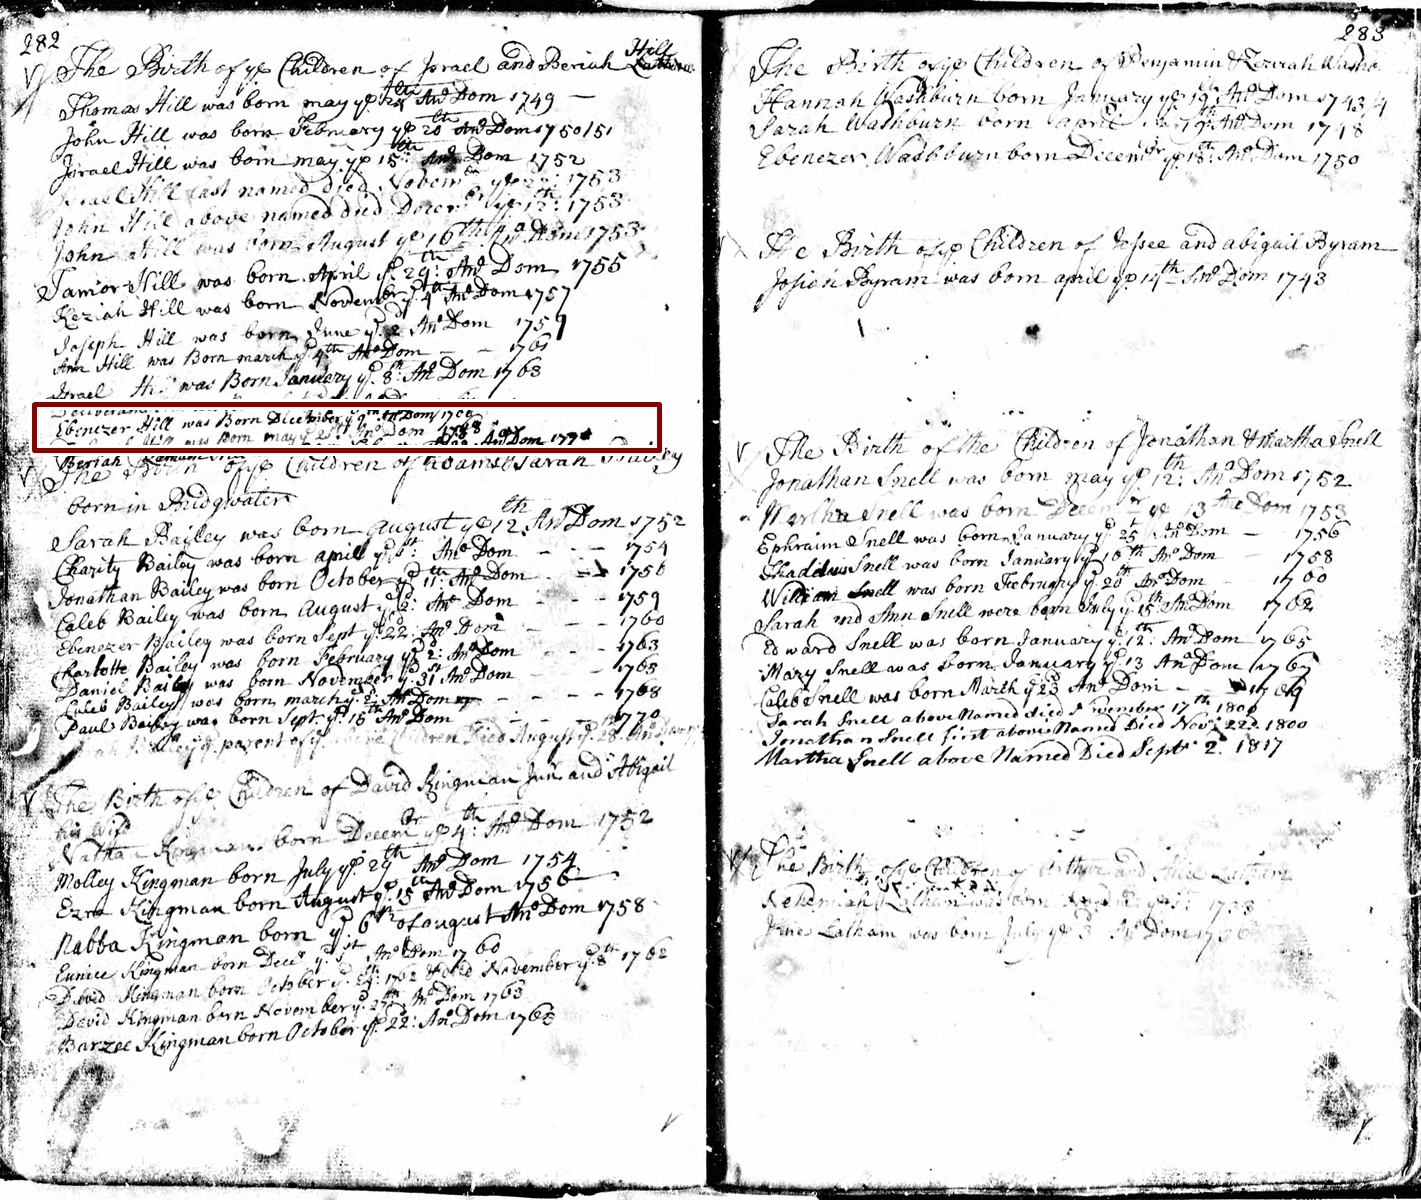 282
The Birth of ye Children of Israel and Beriah Hill
Latham
Thomas Hill was born may ye 24th Ano Dom 1749
John Hill was born February ye 20th Ano Dom 1750/51
Israel Hill was born may ye 15th Ano Dom 1752
Israel Hill last named died Novemr ye 22: 1753
John Hill above named died Decemr ye 12th: 1753
John Hill was born August ye 16th Ano Dom 1753
Hill was born April ye 29th: Ano Dom 1755
Keziah Hill was born November ye 4th Ano Dom 1757
Joseph Hill was born June ye 2 Ano Dom 1759
Ann Hill was Born march ye 4th Ano Dom 1761
Israel Hill was Born January ye 8th Ano Dom 1763
Ebenezer Hill was Born December ye 9th Ano Dom
Hill was Born may ye Ano Dom
Ano Dom
Beriah
The Birth of ye Children of Adams & Sarah Bailey
born in Bridgwater
Sarah Bailey was born August ye 12th Ano Dom 1752
Charity Bailey was born april ye Ano Dom 1754
Jonathan Bailey was born October ye 11th: Ano Dom 1756
Caleb Bailey was born August ye 2: Ano Dom 1759
Ebenezer Bailey was born Sept ye 22: Ano Dom 1760
Charlotte Bailey was born February ye 2: Ano Dom 1763
Daniel Bailey was born November ye 31 Ano Dom 1765
Caleb Bailey was born march ye Ano Dom 1768
Paul Bailey was born Sept. ye 15th Ano Dom 1770
Bailey ye parent of ye Children Died August ye 28. Ano Dom
The Birth of ye Children of David Kingman Jun and Abigail
his Wife
Nathan Kingman born Decemr ye 4th: Ano Dom 1752
Molley Kingman born July ye 29th Ano Dom 1754
Ezra Kingman born August ye 15th Ano Dom 1756
Nabba Kingman born ye 6th of august Ano Dom 1758
Eunice Kingman born Decr ye 1st Ano Dom 1760
David Kingman born October ye 1762 & died November ye 8th 1762
David Kingman born November ye 27th Ano Dom 1763
Barzee Kingman born October ye 22: Ano Dom 1765
283
The Birth of ye Children of Benjamin & Keziah Washb
Hannah Washburn born January ye 19th Ano Dom 1743/4
Sarah Washburn born april 19th Ano Dom 1748
Ebenezer Washburn born Decemr ye 18th: Ano Dom 1750
The Birth of ye Children of Jessee and abigail Byram
Josiah Byram was born april ye 14th Ano Dom 1743
The Birth of the Children of Jonathan & Martha Snell
Jonathan Snell was born may ye 12th: Ano Dom 1752
Martha Snell was born Decemr ye 13 Ano Dom 1753
Ephraim Snell was born January ye 25t Ano Dom 1756
Thaddeus Snell was born January ye 10th Ano Dom 1758
William Snell was born Februery ye 20th Ano Dom 1760
Sarah and Ann Snell were born July ye 15th Ano Dom 1762
Edward Snell was born January ye 12th: Ano Dom 1765
Mary Snell was born January ye 13 Ano Dom 1767
Caleb Snell was born March ye 23 Ano Dom 1769
Sarah Snell above Named died November 17th 1800
Jonathan Snell first above Named Died Novr 22d. 1800
Martha Snell above Named Died Septr 2. 1817
The Birth of ye Children of Arthur and Alice Latham
Nehemiah Latham was born
Jane Latham was born July ye 3 Ano Dom 1736